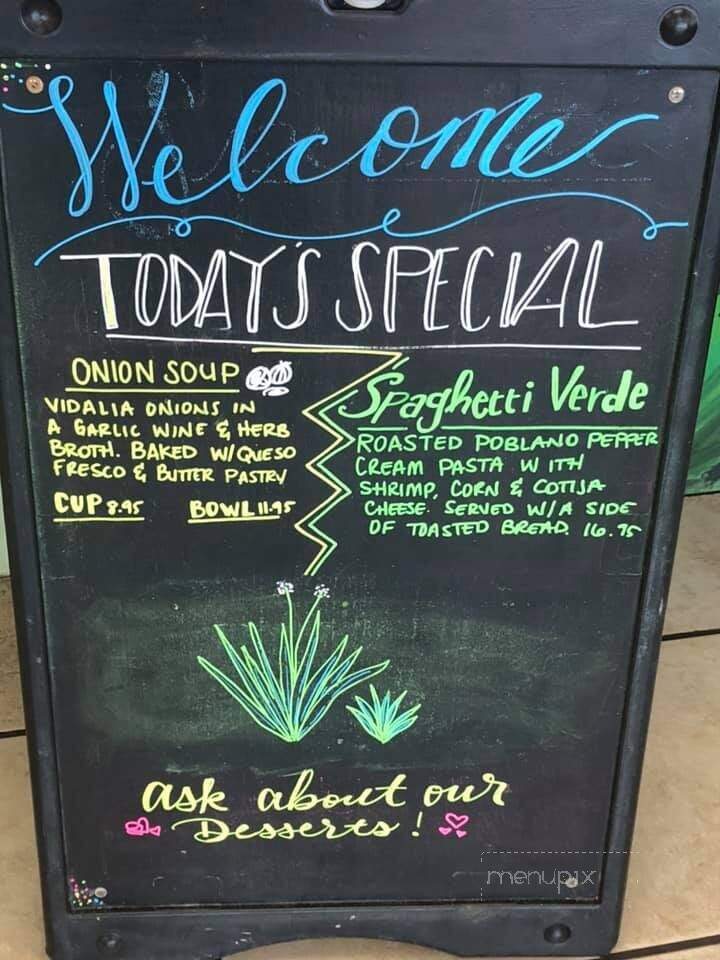 Welcome
TODAY'S SPECIAL
ONION SOUP
VIDALIA ONIONS IN
A GARLIC WINE & HERB
BROTH. BAKED W/QUESO
FRESCO & BUTTER PASTRY
CUP 8.95 BOWL 11.95
Spaghetti Verde
ROASTED POBLANO PEPPER
CREAM PASTA WITH
SHRIMP, CORN & COTIJA
CHEESE. SERVED W/A SIDE
OF TOASTED BREAD. 16.95
ask about our
Desserts!
menupix